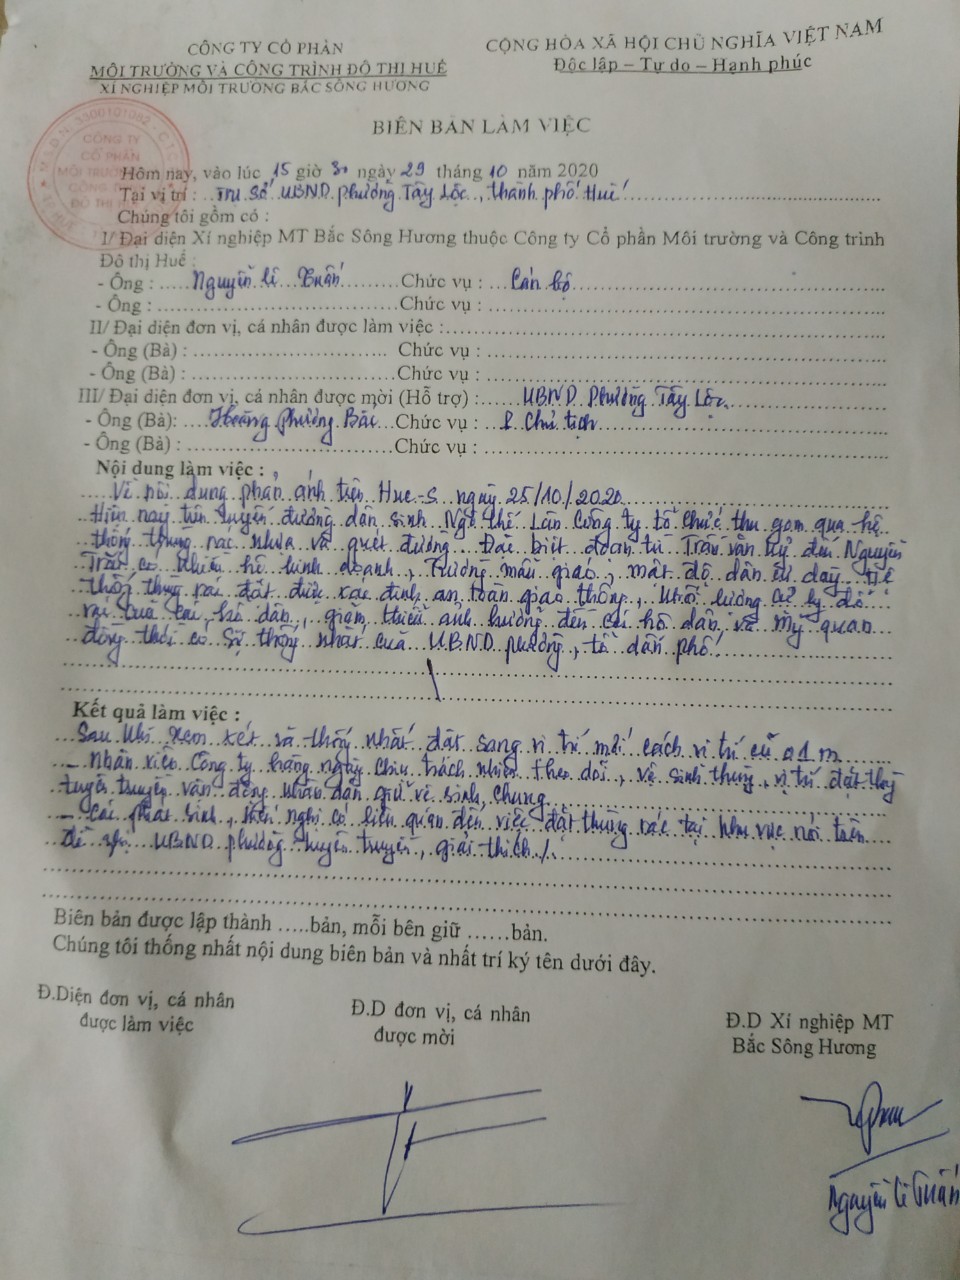 CÔNG TY CỔ PHẦN
MÔI TRƯỜNG VÀ CÔNG TRÌNH ĐÔ THỊ HUẾ
XÍ NGHIỆP MÔI TRƯỜNG BẮC SÔNG HƯƠNG
CỘNG HÒA XÃ HỘI CHỦ NGHĨA VIỆT NAM
Độc lập – Tự do – Hạnh phúc
M.S.D.N: 3300101082 - C.T.C
CÔNG TY
CỔ PHẦN
MÔI TRƯỜNG
CÔNG
ĐÔ THỊ
BIÊN BẢN LÀM VIỆC
Hôm nay, vào lúc 15 giờ 30 ngày 29 tháng 10 năm 2020
Tại vị trí : Trụ Sở UBND phường Tây Lộc, thành phố Huế
Chúng tôi gồm có :
1/ Đại diện Xí nghiệp MT Bắc Sông Hương thuộc Công ty Cổ phần Môi trường và Công trình
Đô thị Huế :
- Ông : Nguyễn Lê Tuấn Chức vụ : Cán bộ
- Ông : Chức vụ :
II/ Đại diện đơn vị, cá nhân được làm việc :
- Ông (Bà) : Chức vụ :
- Ông (Bà) : Chức vụ :
III/ Đại diện đơn vị, cá nhân được mời (Hỗ trợ) : UBND Phường Tây Lộc
- Ông (Bà): Hoàng Phương Bắc Chức vụ : P. Chủ tịch
- Ông (Bà) : Chức vụ :
Nội dung làm việc :
Về nội dung phản ánh trên Hue-S ngày 25/10/2020
Hiện nay trên tuyến đường dân sinh Ngô Thế Lân Công ty tổ chức thu gom qua hệ
thống thùng rác nhựa và quét đường. Đặc biệt đoạn từ Trần Văn Kỷ đến Nguyễn
Trãi có nhiều hộ kinh doanh, trường mẫu giáo, mật độ dân cư dày
thống thùng rác đặt được xác định an toàn giao thông, khối lượng cự ly đổ
rác của các hộ dân, giảm thiểu ảnh hưởng đến các hộ dân và mỹ quan
đồng thời có sự thống nhất của UBND phường, tổ dân phố.
Kết quả làm việc :
Sau khi xem xét và thống nhất đặt sang vị trí mới cách vị trí cũ 01m
- Nhân viên Công ty hàng ngày chịu trách nhiệm theo dõi, vệ sinh thùng, vị trí đặt thùng
tuyên truyền vận động nhân dân giữ vệ sinh chung
- Các phát sinh, kiến nghị có liên quan đến việc đặt thùng rác tại khu vực nói trên
Đề nghị UBND phường tuyên truyền, giải thích /.
Biên bản được lập thành .....bản, mỗi bên giữ ......bản.
Chúng tôi thống nhất nội dung biên bản và nhất trí ký tên dưới đây.
Đ.Diện đơn vị, cá nhân
được làm việc
Đ.D đơn vị, cá nhân
được mời
Đ.D Xí nghiệp MT
Bắc Sông Hương
Nguyễn Lê Tuấn